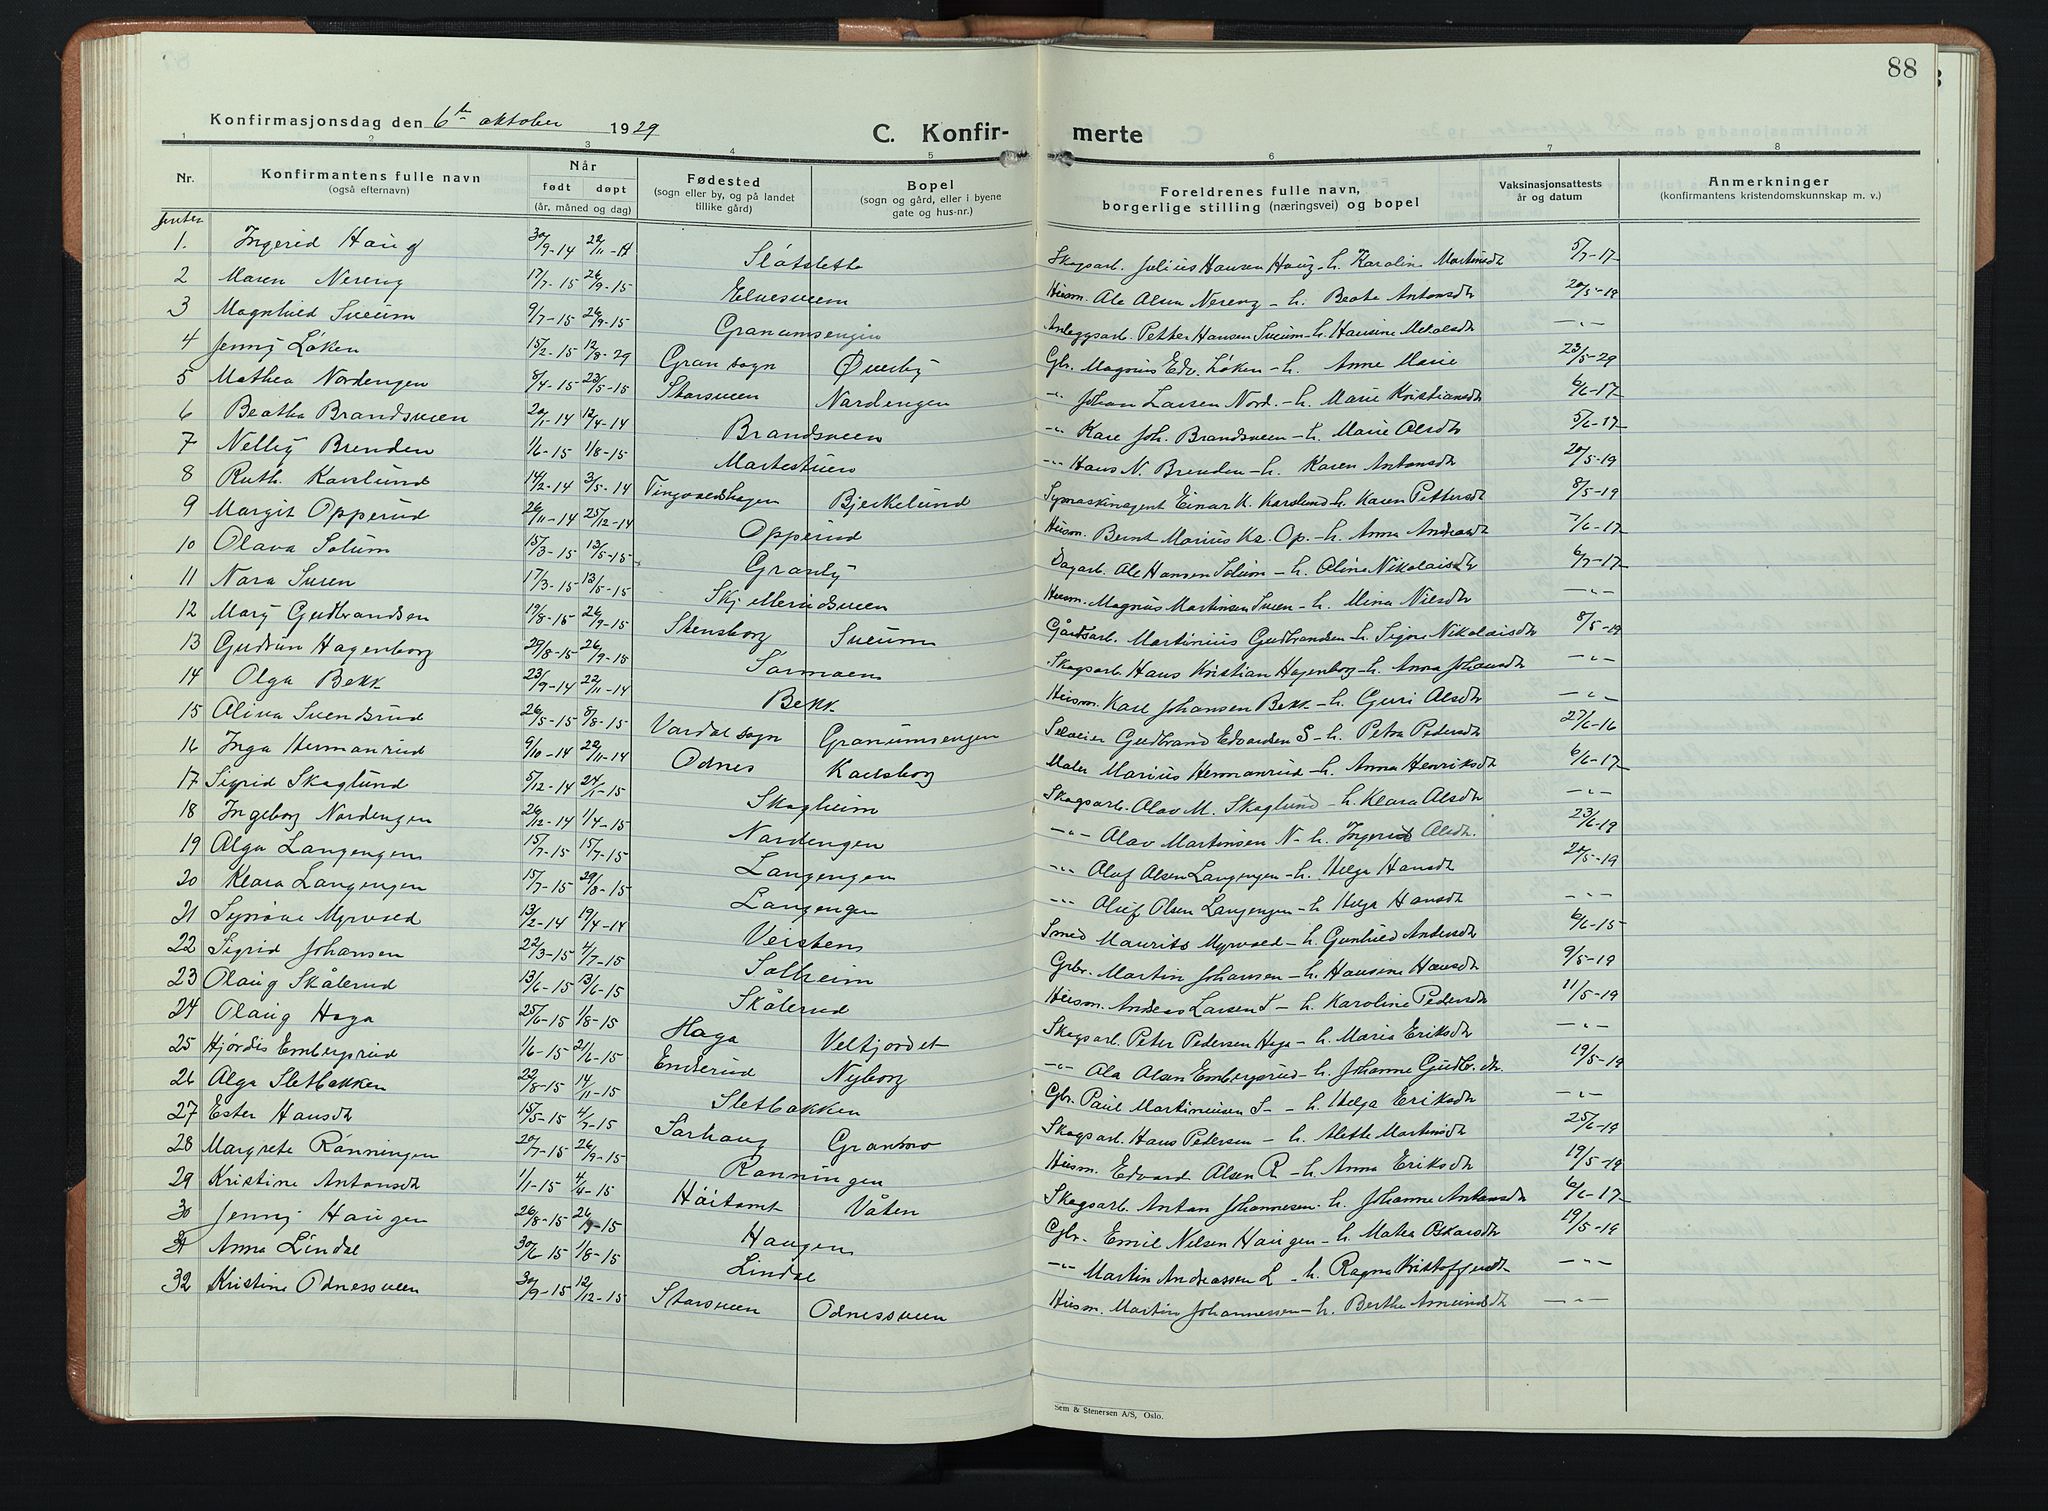 88
Konfirmasjonsdag den 6te oktober 1929
C. Konfir- merte
1 2 3 4 5 6 7 8
Nr. Konfirmantens fulle navn (også efternavn) Når født døpt (år, måned og dag) Fødested (sogn eller by, og på landet tillike gård) Bopel (sogn og gård, eller i byene gate og hus-nr.) Foreldrenes fulle navn, borgerlige stilling (næringsvei) og bopel Vaksinasjonsattests år og datum Anmerkninger (konfirmantens kristendomskunnskap m. v.)
Jenter
1. Ingerid Haug 30/9-14 22/11-14 Slåtsletta Skogsarb. Julius Hansen Haug - h. Karoline Martinsdt 5/7-17
2 Maren Nereng 17/7-15 26/9-15 Elvesveen Husm. Ole Olsen Nereng - h. Beate Antonsdt 20/5-19
3 Magnhild Sveum 9/7-15 26/9-15 Granumsengin Anleggsarb. Petter Hansen Sveum - h. Hansine -"-
4 Jenny Løken 15/2-15 12/8-29 Gran sogn Øverby Gbr. Magnus Edv. Løken - h. Anne Marie 23/5-29
5 Mathea Nordengen 8/4-15 23/5-15 Storsveen Nordengen -"- Johan Larsen Nord. - h. Marie Kristiansdt 6/6-17
6 Beatha Brandsveen 20/1-14 12/4-14 Brandsveen -"- Kare Joh. Brandsveen - h. Marie Olsdt 5/6-17
7 Nelly Brenden 1/6-15 1/8-15 Martestuen -"- Hans N. Brenden - h. Karen Antonsdt 20/5-19
8 Ruth Karslund 14/2-14 3/5-14 Tingvoldshagen Bjerkelund Symaskinagent Einar K. Karslund - h. Karen Pettersdt 8/5-19
9 Margit Opperud 26/11-14 25/12-14 Opperud Husm. Bernt Marius Kr. Op. - h. Anna Andreasdt 7/6-17
10 Olava Solum 15/3-15 13/5-15 Granby Dagarb. Ole Hansen Solum - h. Oline Nikolaisdt 6/7-17
11 Nora Sveen 17/3-15 13/5-15 Skjellerudsveen Husm. Magnus Martinsen Sveen - h. Mina Nilsdt -"-
12 Mary Gudbrandsen 19/8-15 26/9-15 Stensborg Sveum Gårdsarb. Martinius Gudbrandsen - h. Signe Nikolaisdt 8/5-19
13 Gudrun Hagenborg 29/8-15 26/9-15 Sormoen Skogsarb. Hans Kristian Hagenborg - h. Anna Johansdt -"-
14 Olga Bekk 23/9-14 22/11-14 Bekk Husm. Karl Johansen Bekk - h. Guri Olsdt -"-
15 Oliva Svendsrud 26/5-15 8/8-15 Vardal sogn Granumsengen Seleier Gudbrand Edvardsen S - h. Petra Pedersdt 27/6-16
16 Inga Hermanrud 9/10-14 22/11-14 Odnes Karlsborg Maler Marius Hermanrud - h. Anna Henriksdt 6/6-17
17 Sigrid Skoglund 5/12-14 24/1-15 Skogheim Skogsarb. Olav M. Skoglund - h. Klara Olsdt -"-
18 Ingeborg Nordengen 26/12-14 1/4-15 Nordengen -"- Olav Martinsen N - h. Ingerid Olsdt. 23/6-19
19 Olga Langengen 15/7-15 15/7-15 Langengen -"- Oluf Olsen Langengen - h. Helga Hansdt 20/5-19
20 Klara Langengen 15/7-15 29/8-15 Langengen -"- Oluf Olsen Langengen - h. Helga Hansdt -"-
21 Synøve Myrvold 13/2-14 19/4-14 Veisten Smed Maurits Myrvold - h. Gunhild Andersdt 6/6-15
22 Sigrid Johansen 22/3-15 4/7-15 Solheim Grbr. Martin Johansen - h. Hansine Hansdt 9/5-19
23 Olaug Skålerud 13/6-15 13/6-15 Skålerud Husm. Andreas Larsen S - h. Karoline Pedersdt 11/5-19
24 Olaug Haga 25/6-15 1/8-15 Haga Velfjordet Skogsarb. Peter Pedersen Haga - h. Maria Eriksdt -"-
25 Hjørdis Embergsrud 1/6-15 21/6-15 Enderud Nyborg -"- Ola Olsen Embergsrud - h. Johanne Gudbr.dt. 19/5-19
26 Olga Sletbakken 22/8-15 14/11-15 Sletbakken Gbr. Paul Martiniusen S - h. Helga Eriksdt -"-
27 Ester Hansdt 15/5-15 4/7-15 Sørhaug Granbro Skogsarb. Hans Pedersen - h. Alette Martinsdt 25/6-19
28 Margrete Rønningen 20/7-15 26/9-15 Rønningen Husm. Edvard Olsen R - h. Anna Eriksdt 19/5-19
29 Kristine Antonsdt 1/1-15 4/4-15 Håitomt Våten Skogsarb. Anton Johannesen - h. Johanne Antonsdt 6/6-17
30 Jenny Haugen 26/8-15 26/9-15 Haugen Gbr. Emil Nilsen Haugen - h. Matea Oskarsdt 19/5-19
31 Anna Lindal 30/6-15 1/8-15 Lindal -"- Martin Andreassen L - h. Ragna Kristoffersdt -"-
32 Kristine Odnessveen 30/9-15 12/12-15 Storsveen Odnessveen Husm. Martin Johannessen - h. Berthe Amundsdt -"-
Sem & Stenersen A/S, Oslo.